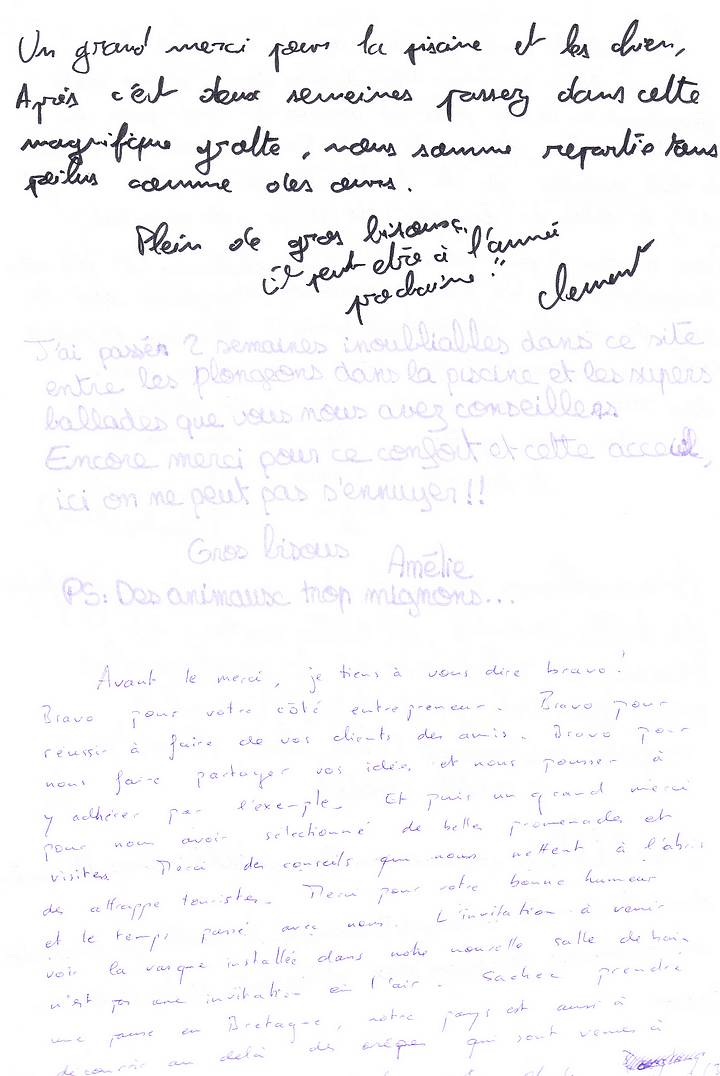 Un grand merci pour la piscine et les chien,
Après c'ést deux semeines passez dans cette
magnifique grotte, nous somme repartis tous
poilus comme des ours.
Plein de gros bisousx,
peut etre à l'année
prochaine !!
clement
J'ai passér 2 semaines inoubliables dans ce site
entre les plongeons dans la piscine et les supers
ballades que vous nous avez conseillers
Encore merci pour ce confort et cette acceuil,
ici on ne peut pas s'ennuyer!!
Gros bisous
Amélie
PS: Des animause trop mignons...
Avant le merci, je tiens à vous dire bravo!
Bravo pour votre côté entrepreneur. Bravo pour
reussir à faire de vos clients des amis. Bravo pour
nous faire partager vos idées et nous pousser à
y adhérer par l'exemple. Et puis un grand merci
pour nous avoir sélectionné de belles promenades et
visites. Merci des conseils qui nous mettent à l'abris
des attrappe touristes. Merci pour votre bonne humeur
et le temps passé avec nous. L'invitation à venir
voir la vasque installée dans notre nouvelle salle de bain
n'est pas une invitation en l'air. Sachez prendre
une pause en Bretagne, notre pays est aussi à
decouvrir au delà des crêpes qui sont venues à